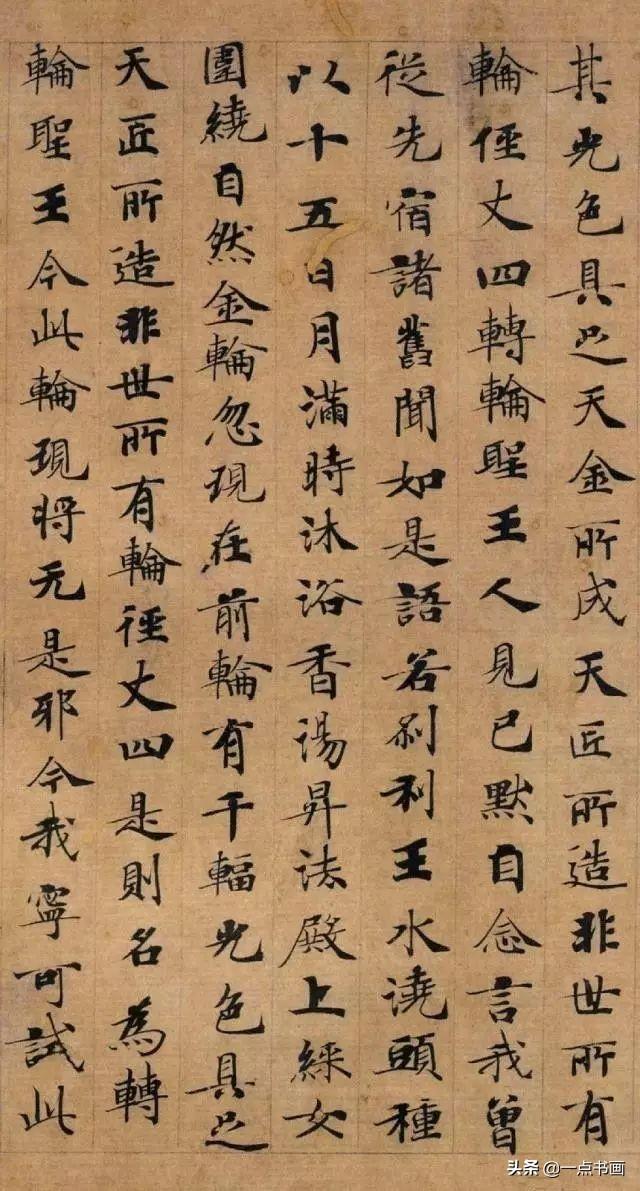 其光色具足天金所成天匠所造非世所有
輪徑丈四轉輪聖王人見已默自念言我曾
從先宿諸舊聞如是語若刹利王水澆頭種
以十五日月滿時沐浴香湯昇法殿上綵女
圍繞自然金輪忽現在前輪有千輻光色具足
天匠所造非世所有輪徑丈四是則名為轉
輪聖王今此輪現將无是邪今我寧可試此
头条 @一点书画